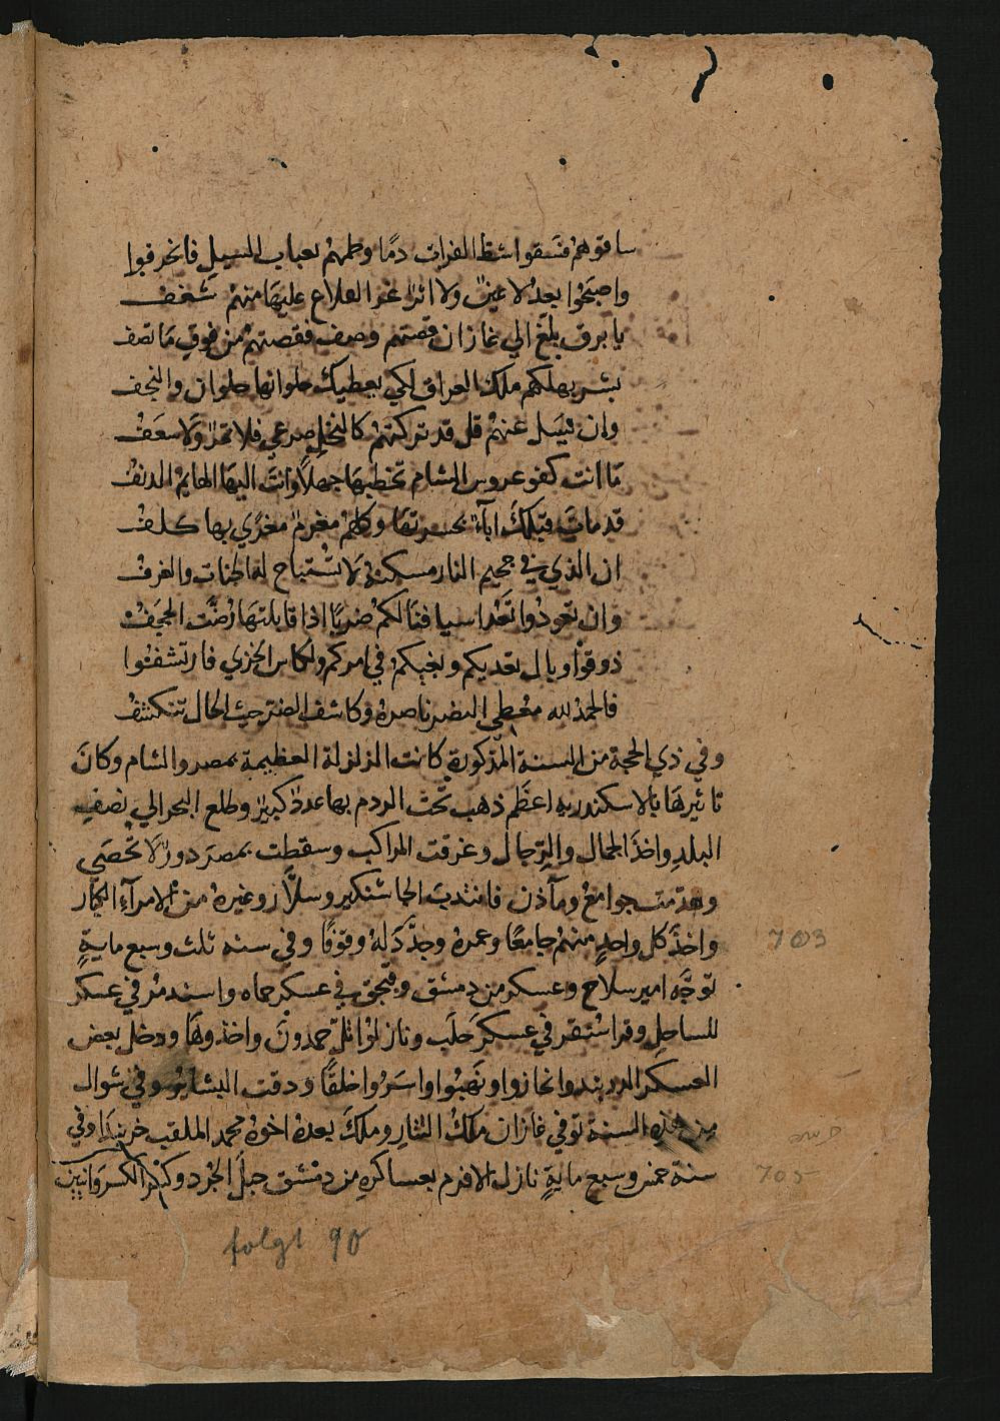 ساقوهم فسقوا شط الفرات دمًا وطمهم بعباب السيل فانحرفوا
واصبحوا بعد لا عين ولا اثر غر القلاع عليها منهم شغف
يا برق بلغ الي غازان قصتهم وصف فقصتهم من فوق ما تصف
بشر بهلكهم ملك العراق لكي يعطيك حلوانها حلوان والنجف
وان تيسل عنهم قل قد تركتهم كالنخل صرعي فلا تمر ولا سعف
ما انت كفو عروس الشام تخطبها جهلًا وانت اليها الهايم الدنف
قد مات قبلك اباء بحسرتها وكلهم مغرم مغري بها كلف
ان الذي في جحيم النار مسكنه لا تستباح له الجنات والغرف
وان تعودوا تعد اسيافنا لكم ضربًا اذا قابلتها رضت الحجف
ذوقوا وبال تعديكم وبغيكم في امركم ولكاس الخزي فارتشفوا
فالحمد لله معطي النصر ناصره وكاشف الضر حيث الحال تنكشف
وفي ذي الحجة من السنة المذكورة كانت الزلزلة العظيمة بمصر والشام وكان
تاثيرها بالاسكندريه اعظم ذهب تحت الردم بها عدد كبير وطلع البحر الي نصف
البلد واخذ الجمال والرجال وغرقت المراكب وسقطت بمصر دور لا تحصي
وهدمت جوامع ومآذن فانتدب الجاشنكير وسلار وغيره من الامرآء الكبار
واخذ كل واحد منهم جامعًا وعمره وجدد له وقوفًا وفي سنه ثلث وسبع ماية
توجه امير سلاح وعسكر من دمشق وقبجق في عسكر حماه واسندمر في عسكر
الساحل وقراسنقر في عسكر حلب ونازلوا تل حمدون واخذوها ودخل بعض
العسكر الدربند وانحازوا ونهبوا واسروا خلقًا ودقت البشاير وفي شوال
من هذه السنة توفي غازان ملك التتار وملك بعده اخوه محمد الملقب خربندا وفي
سنة خمس وسبع ماية نازل الافرم بعساكره من دمشق جبل الجرد وكسر الكسروانيين
703
705
folgt 90